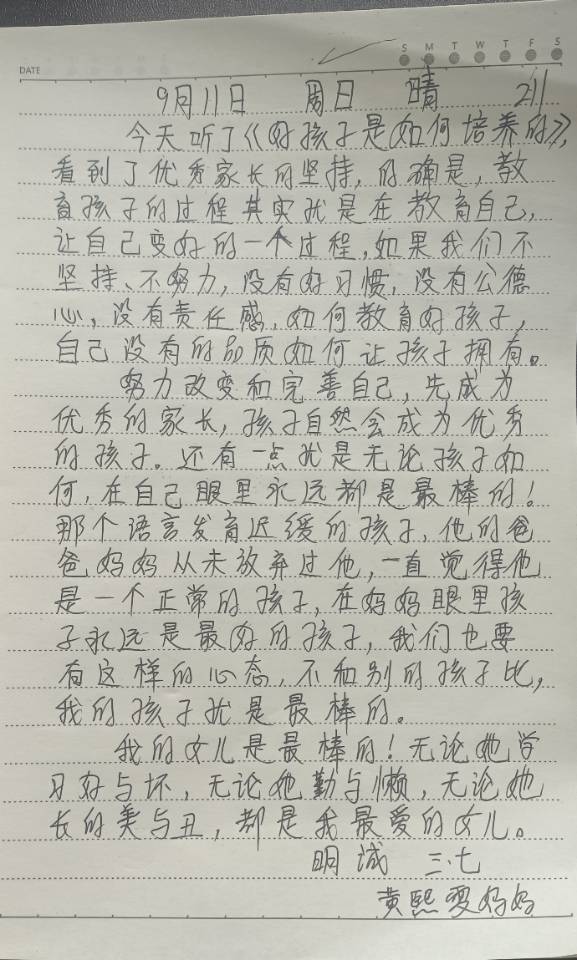 DATE
S M T W T F S
9月11日 周日 晴 211
今天听了《好孩子是如何培养的》,
看到了优秀家长的坚持,的确是,教
育孩子的过程其实就是在教育自己,
让自己变好的一个过程,如果我们不
坚持、不努力,没有好习惯,没有公德
心,没有责任感,如何教育好孩子,
自己没有的品质如何让孩子拥有。
努力改变和完善自己,先成为
优秀的家长,孩子自然会成为优秀
的孩子。还有一点就是无论孩子如
何,在自己眼里永远都是最棒的!
那个语言发育迟缓的孩子,他的爸
爸妈妈从未放弃过他,一直觉得他
是一个正常的孩子,在妈妈眼里孩
子永远是最好的孩子,我们也要
有这样的心态,不和别的孩子比,
我的孩子就是最棒的。
我的女儿是最棒的!无论她学
习好与坏,无论她勤与懒,无论她
长的美与丑,都是我最爱的女儿。
明诚 三·七
黄熙雯妈妈